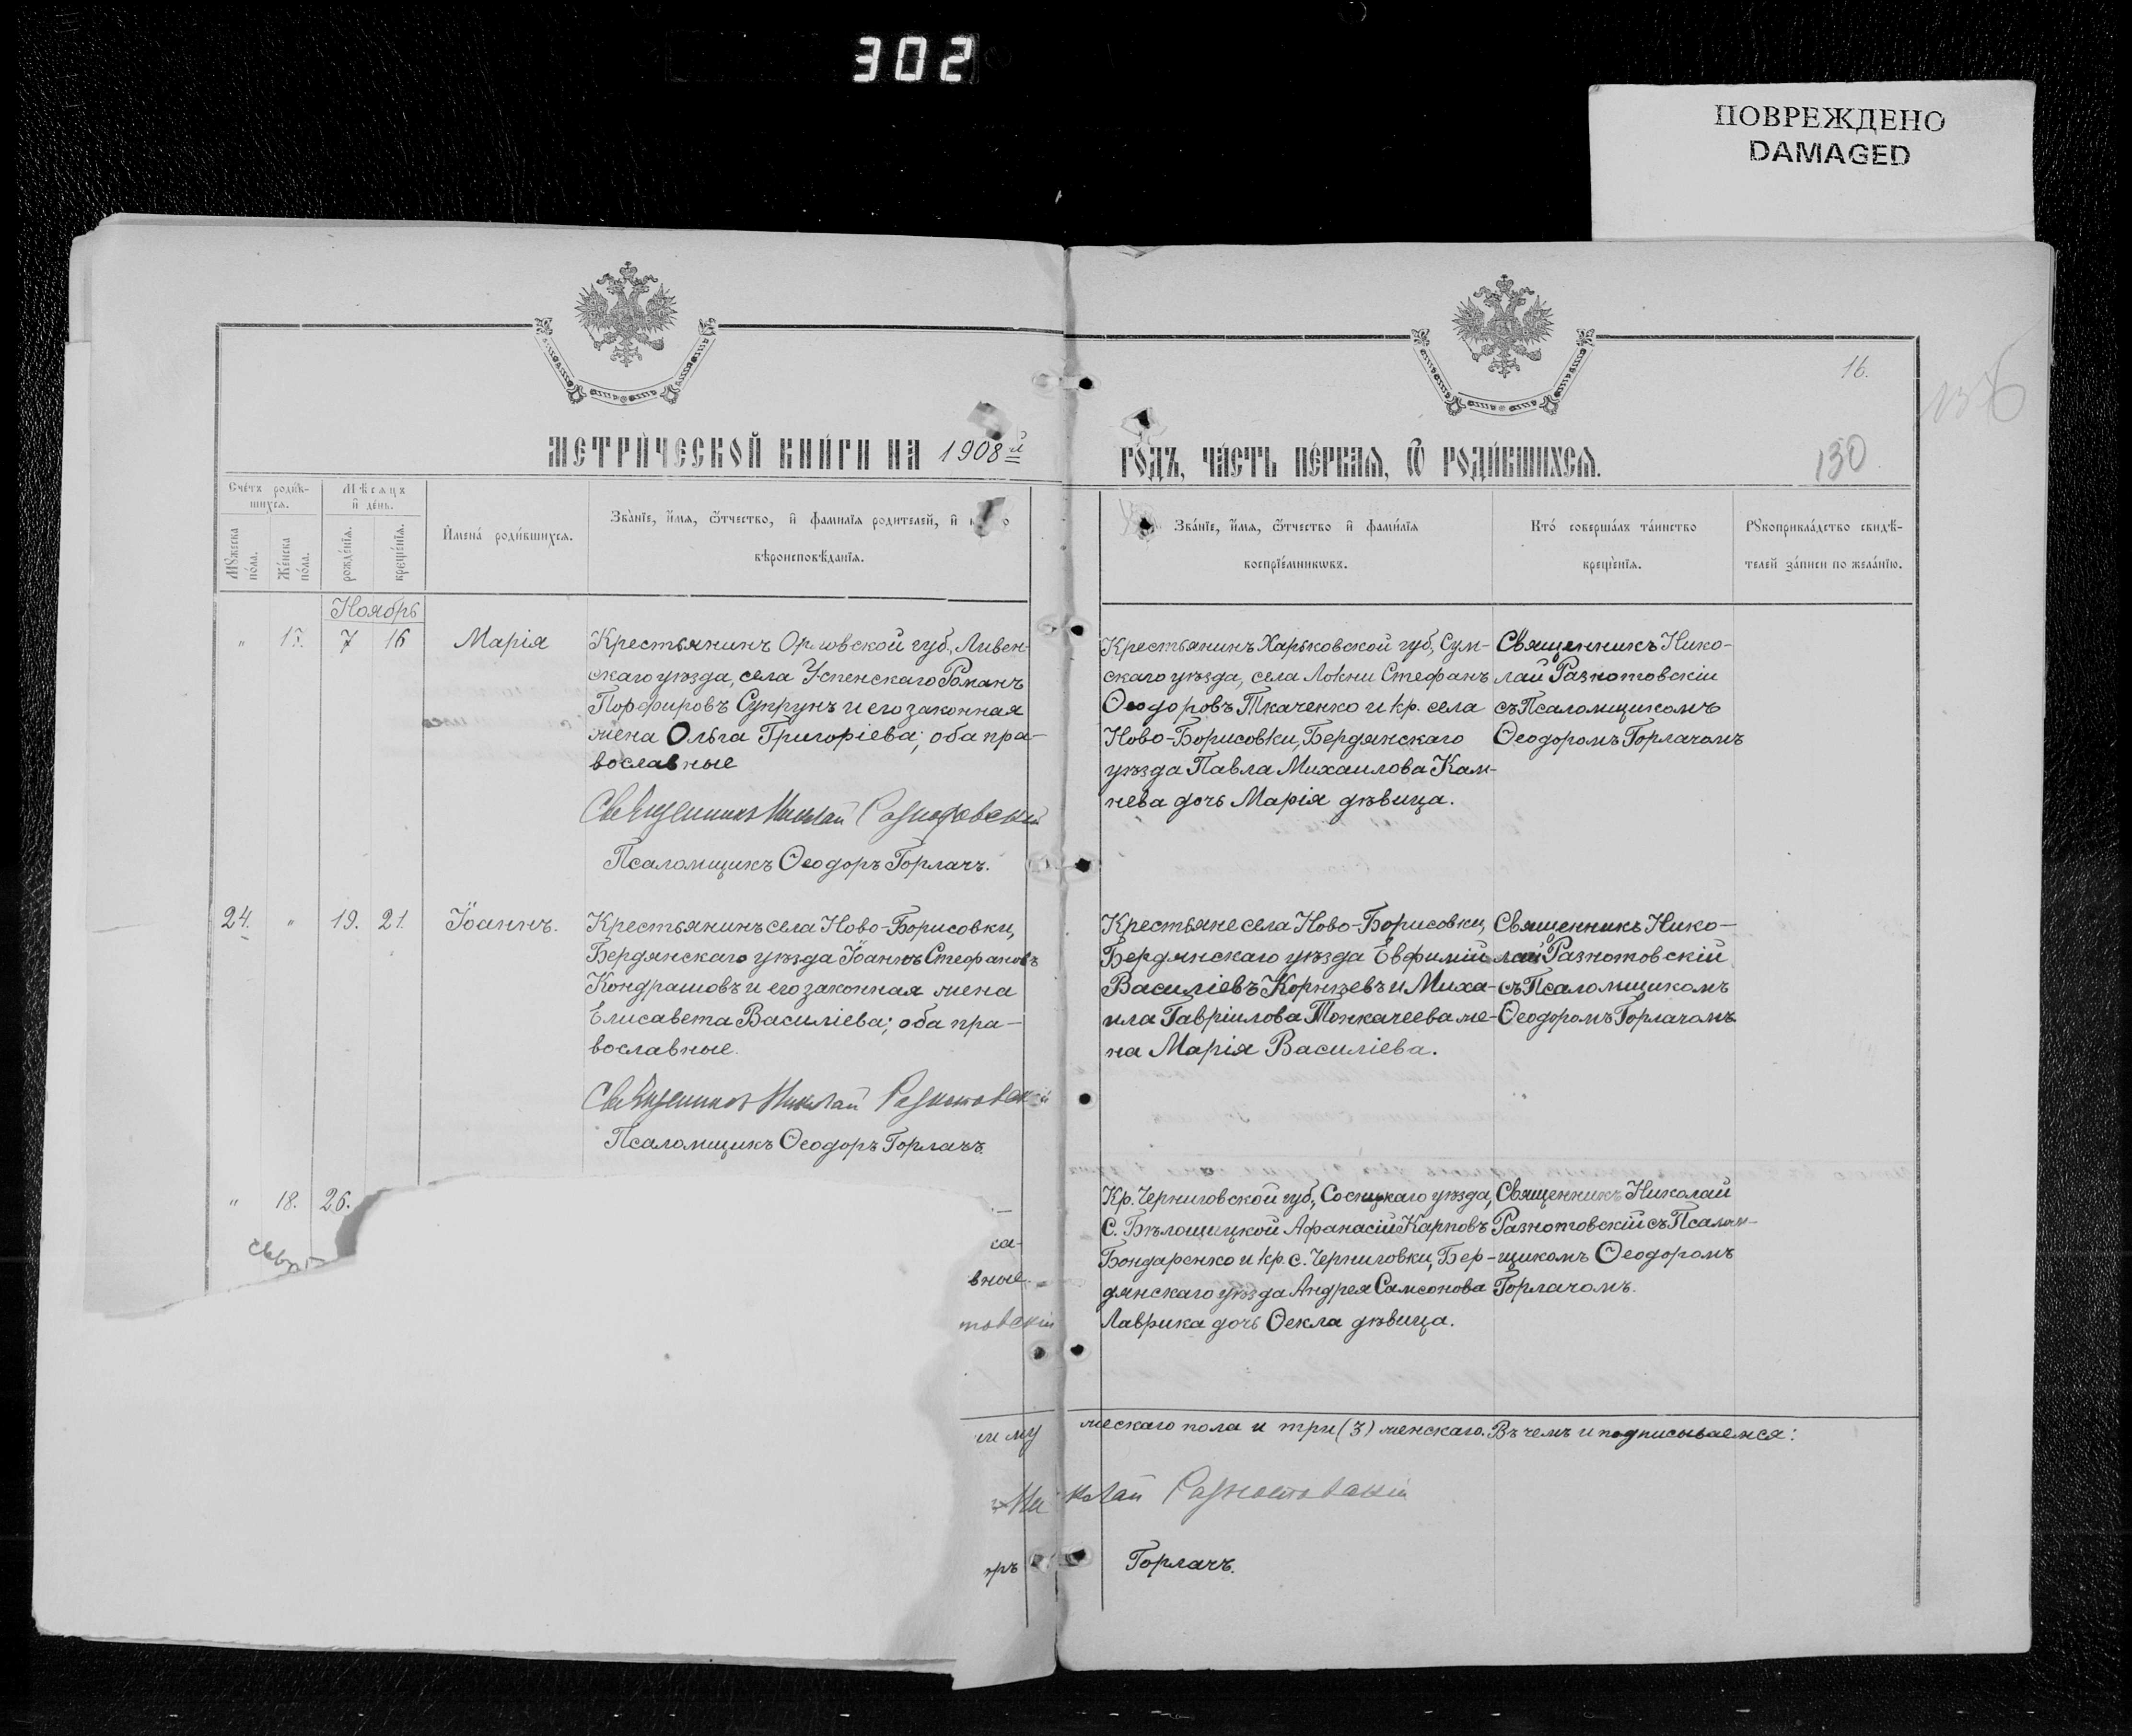 302
ПОВРЕЖДЕНО
DAMAGED
16.
130
МЕТРИ́ЧЕСКОЙ КНИ́ГИ НА 1908й
ГО́ДЪ, ЧА́СТЬ ПЕ́РВАѦ, Ѿ РОДИ́ВШИХСѦ.
Сче́тъ роди́в-
шихсѧ.
Мѣ́сѧцъ
и҆ де́нь.
Мꙋ́жеска
по́ла.
Же́нска
по́ла.
рожде́нїѧ.
креще́нїѧ.
И҆мена̀ роди́вшихсѧ.
Зва́нїе, и҆́мѧ, ѻ҆́тчество, и҆ фами́лїѧ роди́телей, и҆
вѣроисповѣ́данїѧ.
Зва́нїе, и҆́мѧ, ѻ҆́тчество и҆ фами́лїѧ
воспрїе́мникѡвъ.
Кто̀ соверша́лъ та́инство
креще́нїѧ.
Рꙋкоприкла́дство свидѣ́-
телей за́писи по жела́нїю.
Ноябрь
" 17. 7 16 Марія
Крестьянинъ Орловской губ., Ливен-
скаго уѣзда, села Успенскаго Романъ
Порфировъ Супрунъ и его законная
жена Ольга Григоріева; оба пра-
вославные
Священникъ Николай Разнотовскій
Псаломщикъ Ѳеодоръ Горлачъ.
Крестьянинъ Харьковской губ, Сум-
скаго уѣзда, села Локни Стефанъ
Ѳеодоровъ Ткаченко и кр. села
Ново-Борисовки, Бердянскаго
уѣзда Павла Михаилова Кам-
нева дочь Марія дѣвица.
Священникъ Нико-
лай Разнотовскій
съ Псаломщикомъ
Ѳеодоромъ Горлачомъ
24. " 19. 21. Іоаннъ.
Крестьянинъ села Ново-Борисовки,
Бердянскаго уѣзда Іоаннъ Стефановъ
Кондрашовъ и его законная жена
Елисавета Василіева; оба пра-
вославные.
Священникъ Николай Разнотовскій
Псаломщикъ Ѳеодоръ Горлачъ.
Крестьяне села Ново-Борисовки,
Бердянскаго уѣзда Евфимій
Василіевъ Корнѣевъ и Миха-
ила Гавріилова Тонкачеева же-
на Марія Василіева.
Священникъ Нико-
лай Разнотовскій
съ Псаломщикомъ
Ѳеодоромъ Горлачомъ
" 18. 26.
са-
вные.
товскій
Кр. Черниговской губ., Сосницкаго уѣзда,
С. Бѣлощицкой Афанасій Карповъ
Бондаренко и кр. с. Черниговки, Бер-
дянскаго уѣзда Андрея Самсонова
Лаврика дочь Ѳекла дѣвица.
Священникъ Николай
Разнотовскій съ Псалом-
щикомъ Ѳеодоромъ
Горлачомъ.
му жескаго пола и три (3) женскаго. Въ чемъ и подписываемся:
Николай Разнотовскій
ръ Горлачъ.